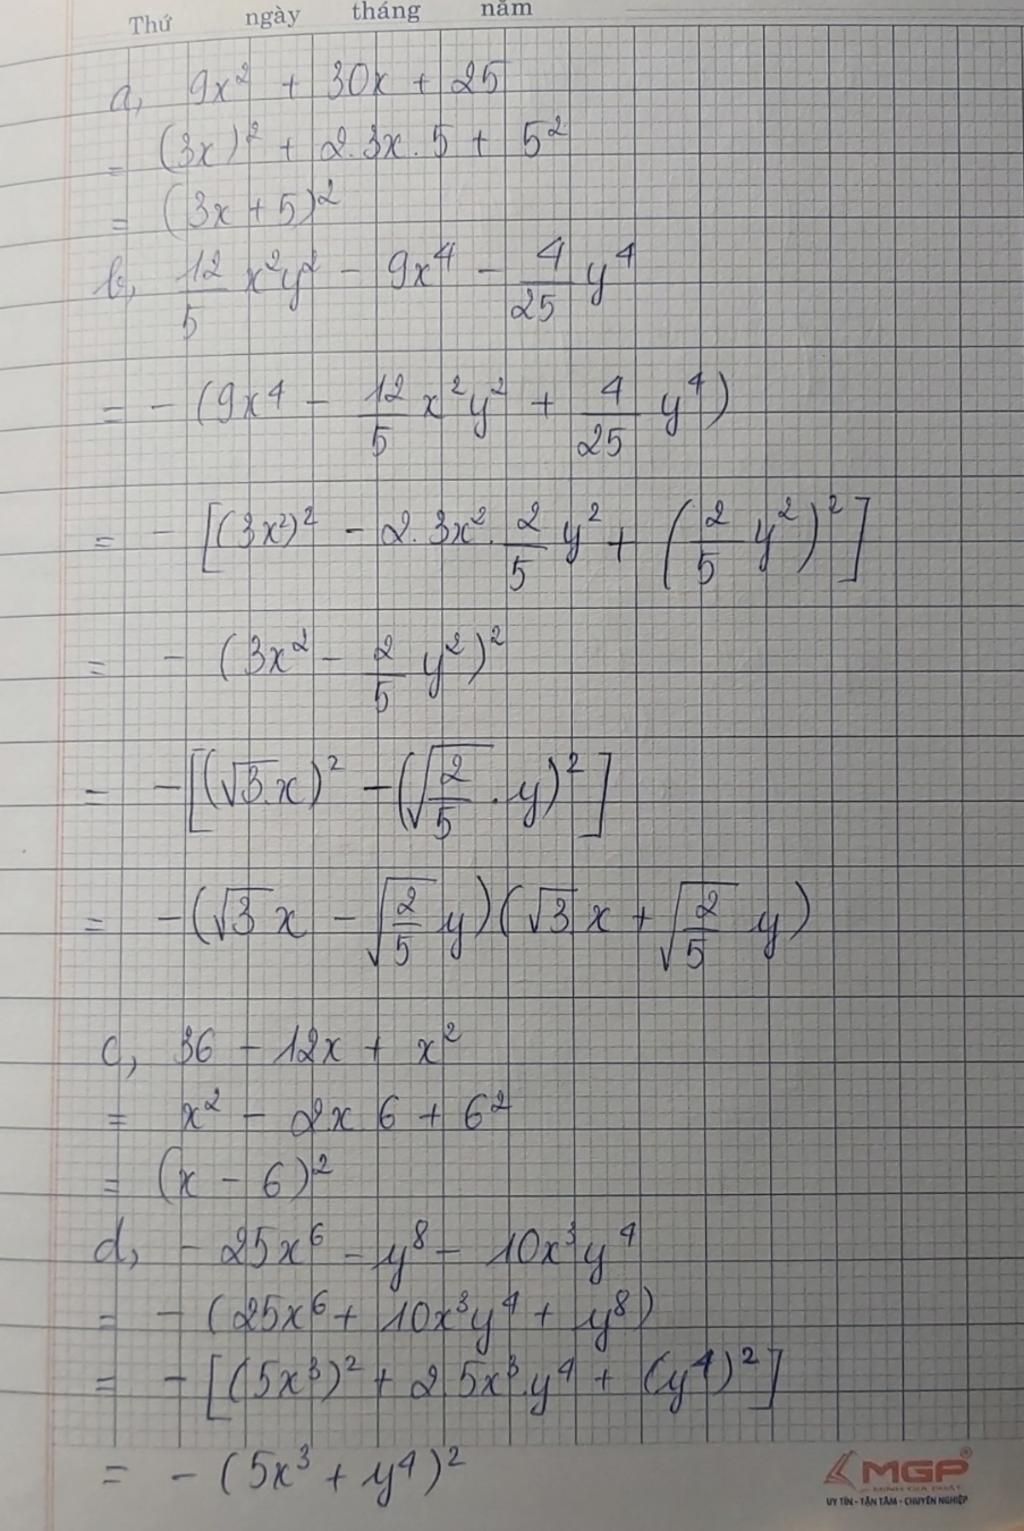 Thứ ngày tháng năm
a, 9x² + 30x + 25
= (3x)² + 2.3x.5 + 5²
= (3x + 5)²
b, 12/5 x²y² - 9x⁴ - 4/25 y⁴
= - (9x⁴ - 12/5 x²y² + 4/25 y⁴)
= - [(3x²)² - 2.3x².2/5 y² + (2/5 y²)²]
= - (3x² - 2/5 y²)²
= - [(√3.x)² - (√(2/5).y)²]
= - (√3 x - √(2/5) y)(√3 x + √(2/5) y)
c, 36 - 12x + x²
= x² - 2x 6 + 6²
= (x - 6)²
d, - 25x⁶ - y⁸ - 10x³y⁴
= - (25x⁶ + 10x³y⁴ + y⁸)
= - [(5x³)² + 2 5x³.y⁴ + (y⁴)²]
= - (5x³ + y⁴)²
MGP
UY TÍN - TẬN TÂM - CHUYÊN NGHIỆP